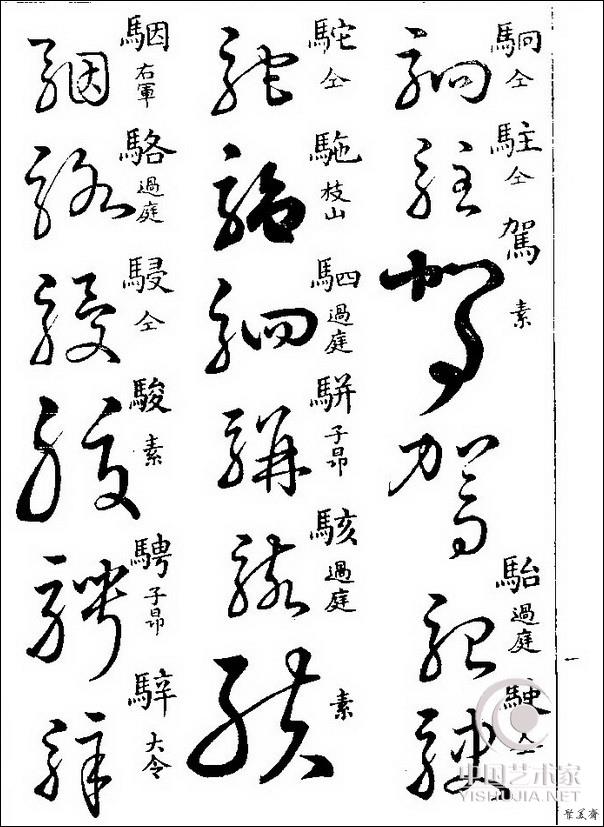 駉 仝
駐 仝
駕 素
駘 過庭
駛 仝
駝 仝
駞 枝山
駟 過庭
駢 子昂
駭 過庭
素
駰 右軍
駱 過庭
駸 仝
駿 素
騁 子昂
騂 大令
中国艺术家
YISHUJIA.NET